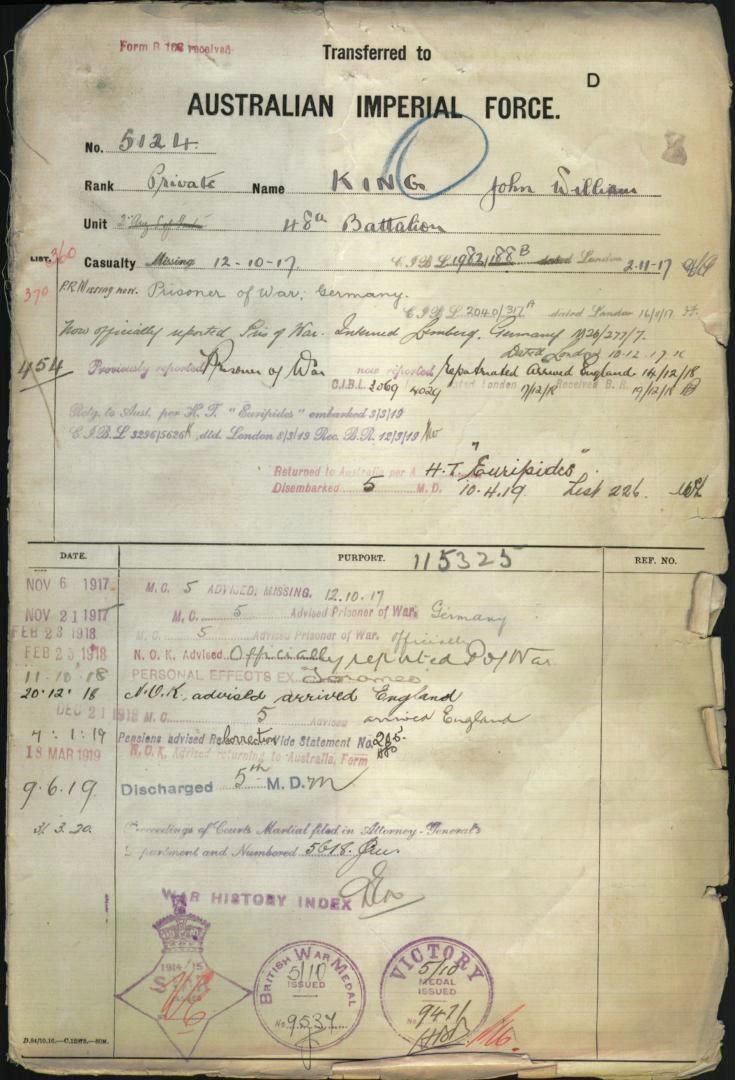 Form B 103 received
Transferred to
D
AUSTRALIAN IMPERIAL FORCE.
No. 5124
Rank Private Name KING John William
Unit 48th Battalion
LIST. 360 Casualty Missing 12-10-17. C.I.B.L. 1982/188 B dated London 2-11-17
370 P.R. Missing now. Prisoner of War; Germany.
C.I.B.L. 2040/317 A dated London 16/11/17
Now officially reported Pris of War. Interned Germany
Dated London 10-12-17
454 Previously reported Prisoner of War now reported Repatriated arrived England 14/12/18
C.I.B.L. 2069 dated London Received B.R. 19/12/18
Rtg. to Aust. per H.T. "Euripides" embarked 3/3/19
C.I.B.L 3296/5626 dtd. London 8/3/19 Rec. B.R. 12/3/19
Returned to Australia per H.T. "Euripides"
Disembarked 5 M.D. 10.4.19 List 226.
DATE. PURPORT. 115325 REF. NO.
NOV 6 1917 M.C. 5 ADVISED; MISSING. 12.10.17
NOV 21 1917 M.C. 5 Advised Prisoner of War. Germany
FEB 23 1918 M.C. 5 Advised Prisoner of War. officially
FEB 23 1918 N.O.K. Advised Officially reported P of War
11-10-18 PERSONAL EFFECTS EX
20-12-18 N.O.K. advised arrived England
DEC 21 1918 M.C. 5 Advised arrived England
4:1:19 Pensions advised Re Correction Vide Statement No. 285
18 MAR 1919 N.O.K. Advised returning to Australia, Form
9.6.19 Discharged 5th M.D.
31.3.20. Proceedings of Courts Martial filed in Attorney-General's
Department and Numbered 5618.
WAR HISTORY INDEX
1914/15 STAR
BRITISH WAR MEDAL 5/10 ISSUED No. 9537
VICTORY 5/10 MEDAL ISSUED No. 9471
D.84/10.16.—C.12875.—50M.